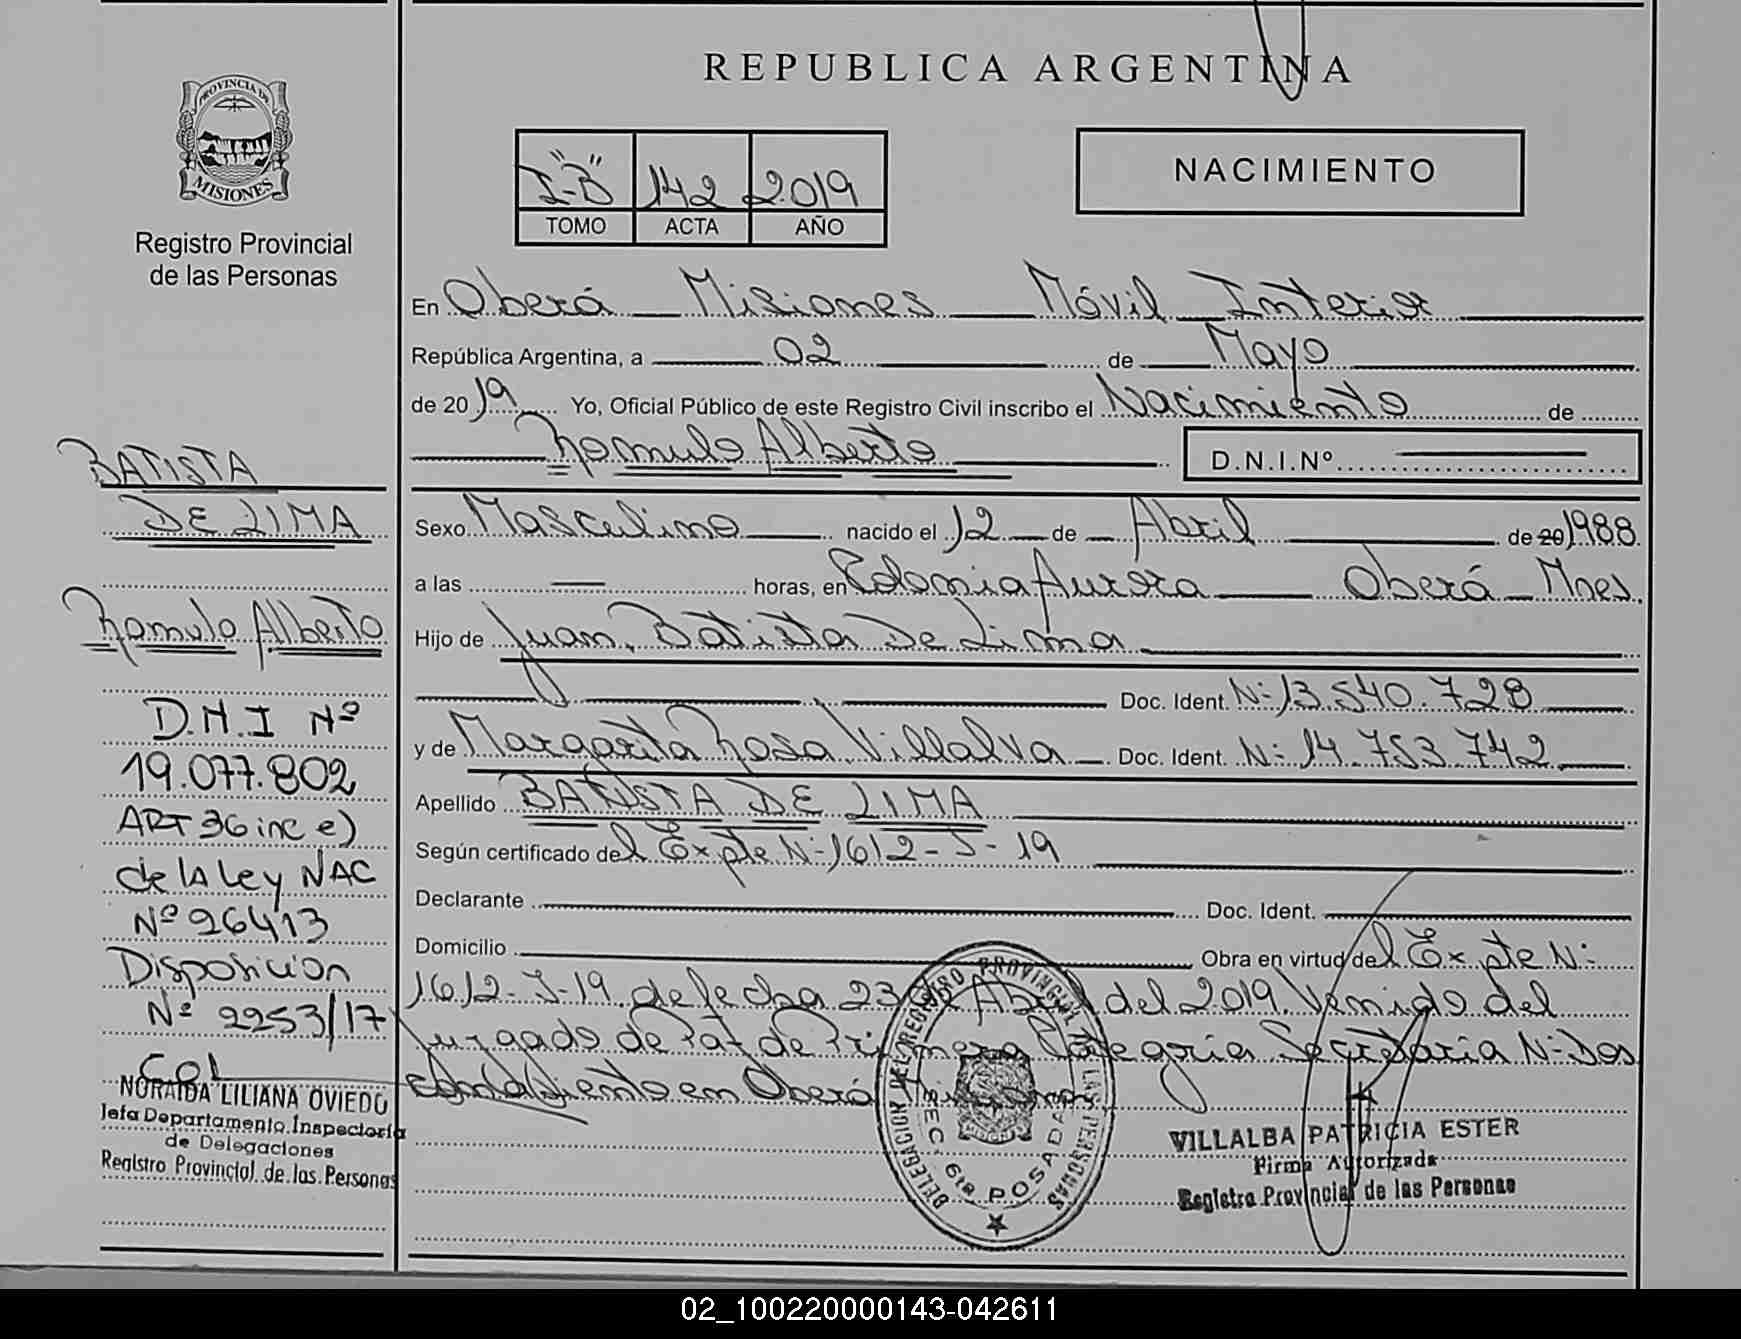 PROVINCIA DE
MISIONES
Registro Provincial
de las Personas
BATISTA
DE LIMA
Romulo Alberto
D.N.I Nº
19.077.802
ART 36 inc e)
de la Ley NAC
Nº 26413
Disposicion
Nº 2253/17
NORAIDA LILIANA OVIEDO
Jefa Departamento Inspectoria
de Delegaciones
Registro Provincial de las Personas
REPUBLICA ARGENTINA
I-"B" 142 2019
TOMO ACTA AÑO
NACIMIENTO
En Oberá Misiones Móvil Interior
República Argentina, a 02 de Mayo
de 2019 Yo, Oficial Público de este Registro Civil inscribo el Nacimiento de
Romulo Alberto D.N.I.Nº
Sexo Masculino nacido el 12 de Abril de 20 1988
a las horas, en Colonia Aurora Oberá Mnes.
Hijo de Juan Batista De Lima
Doc. Ident. Nº 13.540.728
y de Margarita Rosa Villalva Doc. Ident. Nº 14.753.742
Apellido BATISTA DE LIMA
Según certificado del Expte Nº 1612-J-19
Declarante Doc. Ident.
Domicilio Obra en virtud del Expte Nº
1612-J-19 de fecha 23 de Abril del 2019 Venido del
Juzgado de Paz de Primera Categoria Secretaria Nº Dos
con asiento en Oberá
DELEGACION DEL REGISTRO PROVINCIAL DE LAS PERSONAS
SECC. 6ta POSADAS
VILLALBA PATRICIA ESTER
Firma Autorizada
Registro Provincial de las Personas
02_100220000143-042611